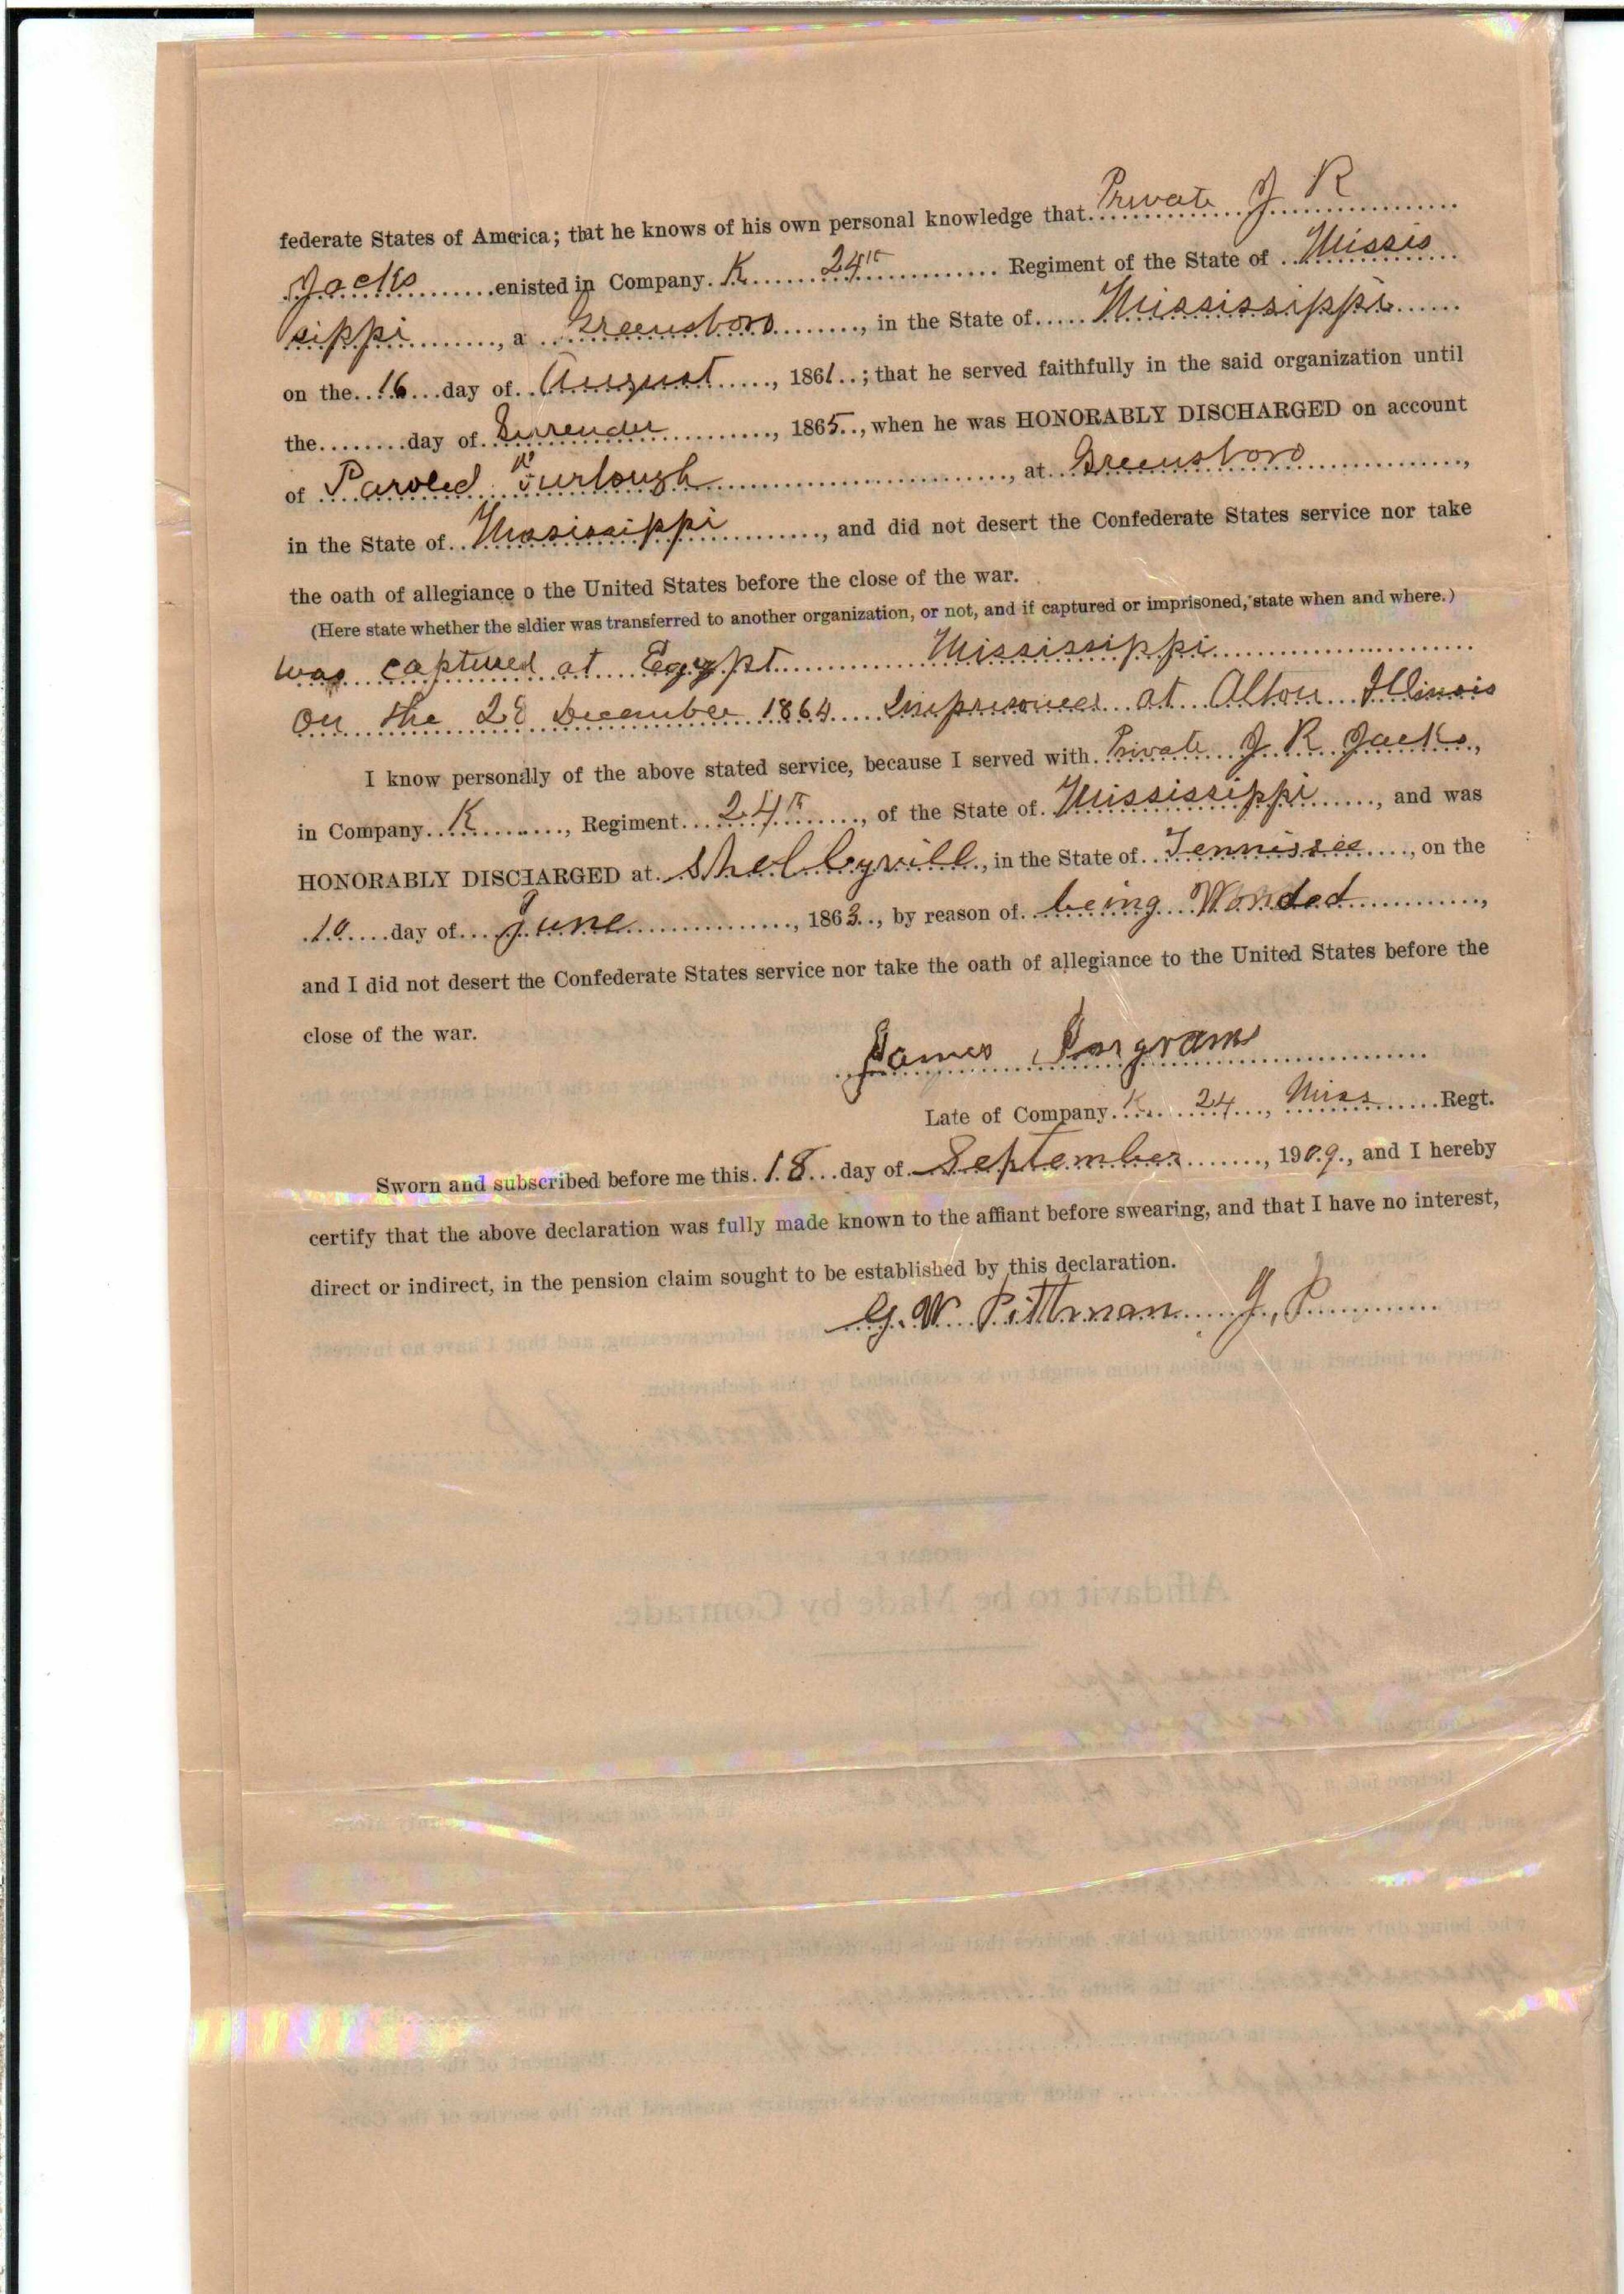 federate States of America; that he knows of his own personal knowledge that Private J R
Jacks enisted in Company K 24th Regiment of the State of Missis
sippi, a Greensboro, in the State of Mississippi
on the 16 day of August, 1861; that he served faithfully in the said organization until
the day of Surrender, 1865, when he was HONORABLY DISCHARGED on account
of Paroled Furlough, at Greensboro,
in the State of Mississippi, and did not desert the Confederate States service nor take
the oath of allegiance o the United States before the close of the war.
(Here state whether the sldier was transferred to another organization, or not, and if captured or imprisoned, state when and where.)
was captured at Egypt Mississippi
on the 28 December 1864 Imprisoned at Alton Illinois
I know personally of the above stated service, because I served with Private J R Jacks,
in Company K, Regiment 24th, of the State of Mississippi, and was
HONORABLY DISCHARGED at Shelbyvill, in the State of Tennissee, on the
10 day of June, 1863, by reason of being Wonded,
and I did not desert the Confederate States service nor take the oath of allegiance to the United States before the
close of the war.
James Ingram
Late of Company K 24, Miss Regt.
Sworn and subscribed before me this 18 day of September, 1909, and I hereby
certify that the above declaration was fully made known to the affiant before swearing, and that I have no interest,
direct or indirect, in the pension claim sought to be established by this declaration.
G. W. Pittman J, P